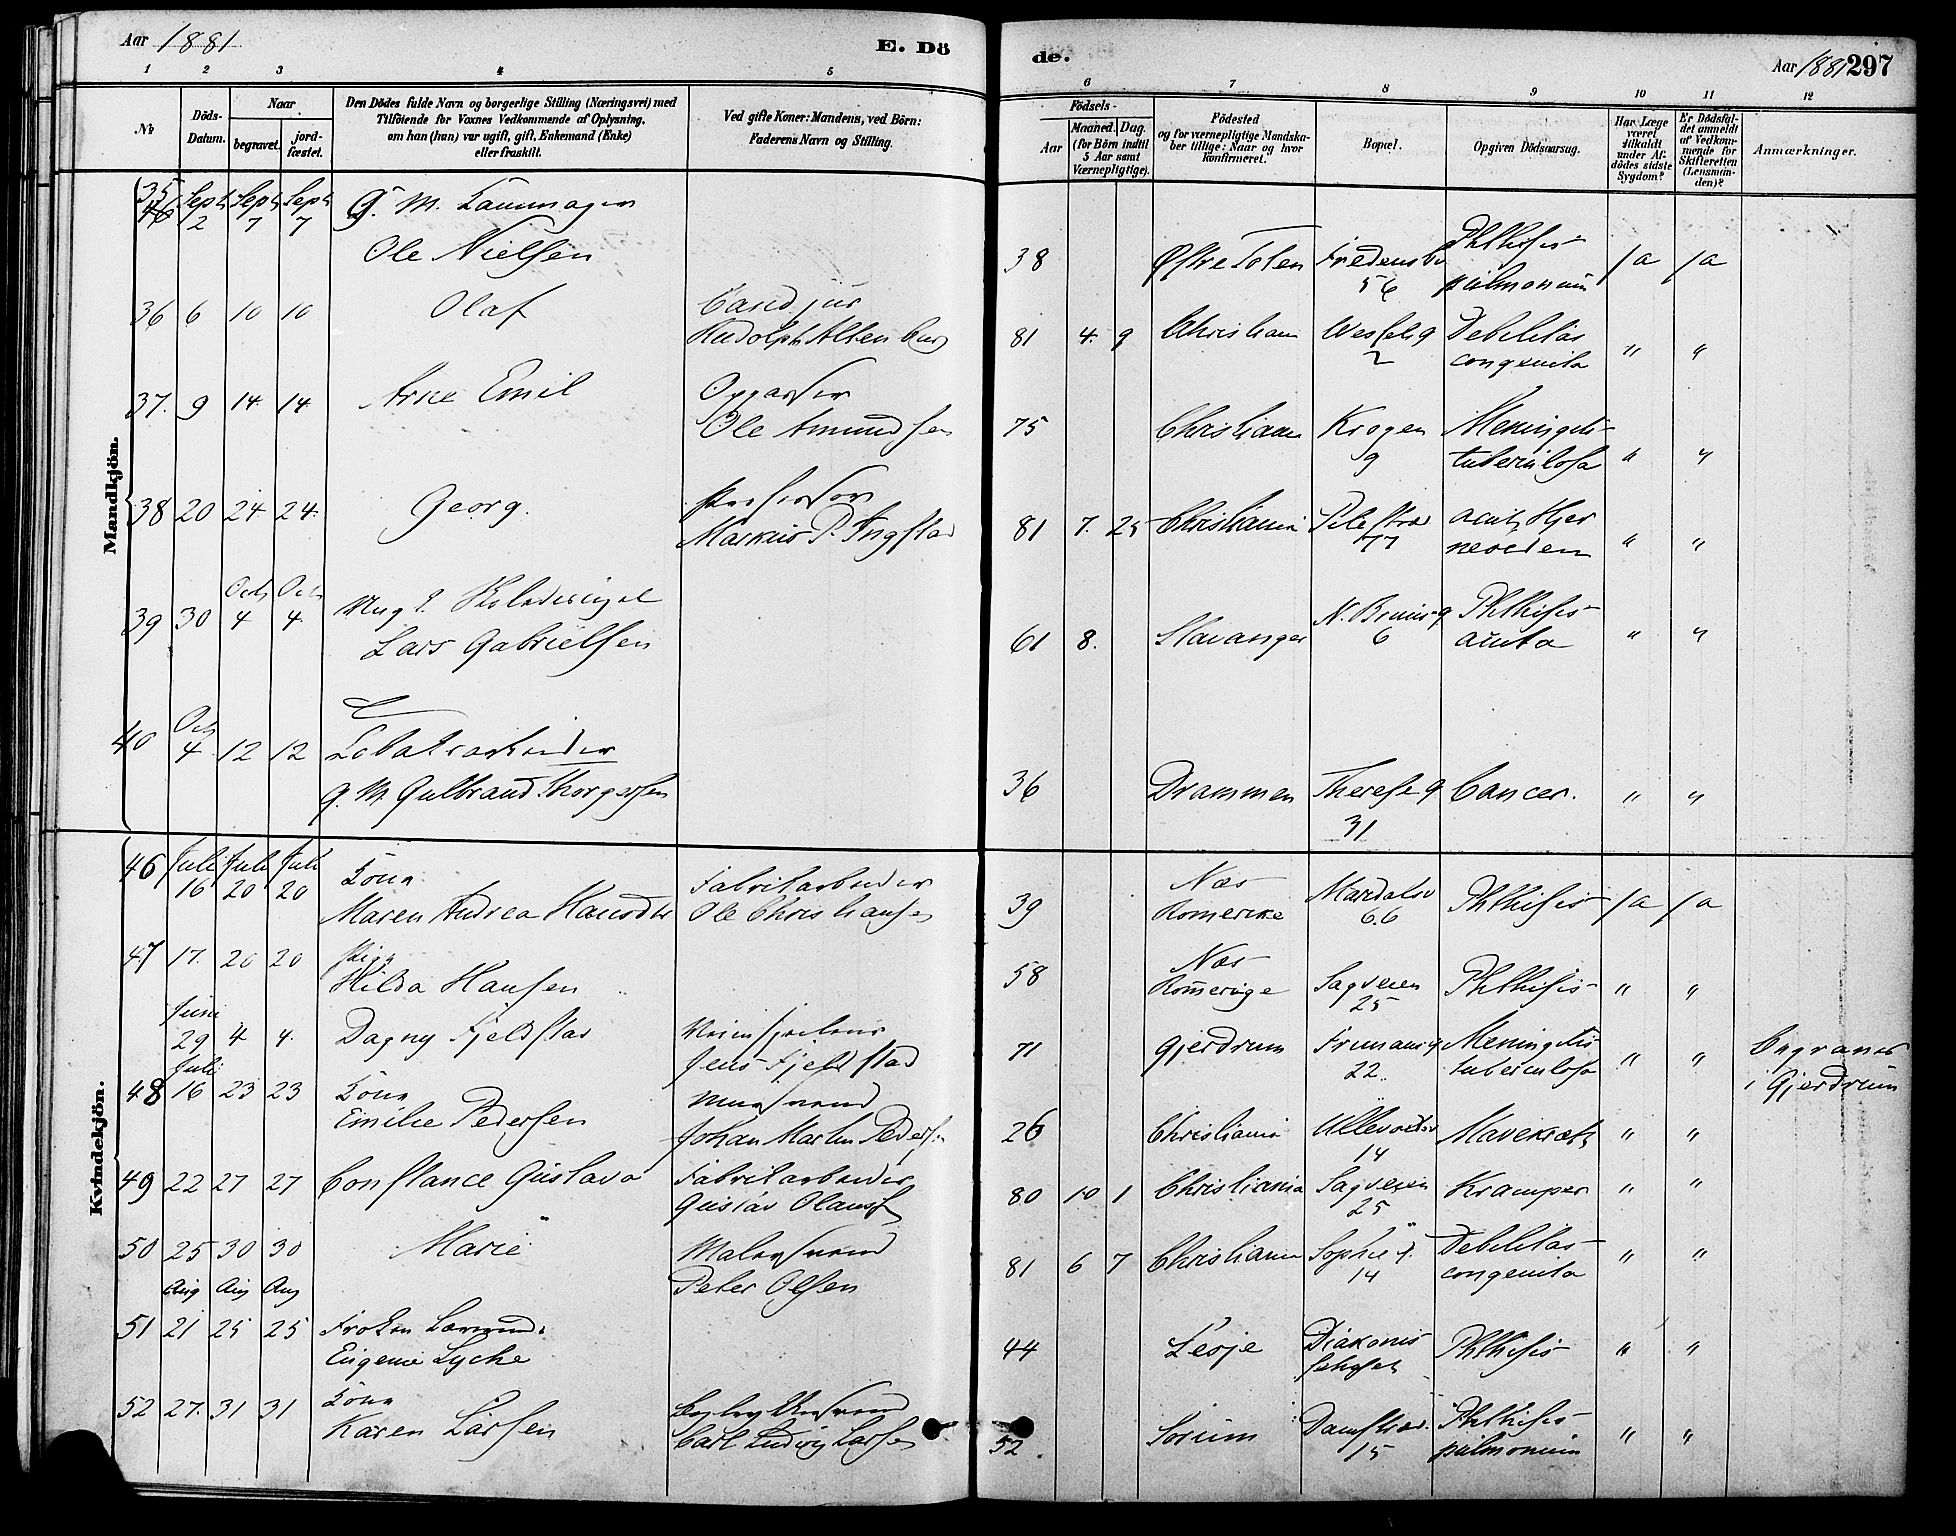 Aar 1881
E. Dö
de.
Aar 1881 297
1 2 3 4 5 6 7 8 9 10 11 12
№
Döds-Datum.
Naar
begravet.
jordfæstet.
Den Dödes fulde Navn og borgerlige Stilling (Næringsvei) med
Tilföiende for Voxnes Vedkommende af Oplysning,
om han (hun) var ugift, gift, Enkemand (Enke)
eller fraskilt.
Ved gifte Koner: Mandens, ved Börn:
Faderens Navn og Stilling.
Födsels-
Aar
Maaned. Dag.
(for Börn indtil
5 Aar samt
Værnepligtige).
Födested
og for værnepligtige Mandska-
ber tillige: Naar og hvor
konfirmeret.
Bopæl.
Opgiven Dödsaarsag.
Har Læge
været
tilkaldt
under Af-
dödes sidste
Sygdom?
Er Dödsfal-
det anmeldt
af Vedkom-
mende for
Skifteretten
(Lensman-
den)?
Anmærkninger.
Mandkjön.
35 Sept 2 Sept 7 Sept 7 g. M.
Ole Nielsen 38 Østre Toten Fredensbv 56 Phthisis pulmonum Ja Ja
36 6 10 10 Olaf Cand jur
Rudolph Altenburg 81 4. 9 Christiania 2 Debilitas congenita " "
37. 9 14. 14 Arne Emil Oppasser
Ole Amundsen 75 Christiania Krogen 9 Meningitis tuberculosa " "
38 20 24 24. Georg. Professor
Markus P. 81 7. 25 Christiania Pilestræd 77 acut Hjerneoedem " "
39 30 Octb 4 Octb 4 Ung
Lars Gabrielsen 61 8. Stavanger N. 6 Phthisis acuta " "
40 Octb 4 12 12
g. M. Gulbrand Thorgersen 36 Drammen Therese g 31 Cancer. " "
Kvindekjön.
46 Juli 16 Juli 20 Juli 20 Kona Fabrikarbeider
Maren Andrea Hansdtr Ole Christiansen 39 Næs Romerike Maridalsv 66 Phthisis Ja Ja
47 17. 20 20 Pige
Hilda Hansen 58 Næs Romerige Sagveien 25 Phthisis " "
Juni 29 4 4. Dagny Fjeldstad
Jens Fjeldstad 71 Gjerdrum 22 Meningitis tuberculosa " " Begravet i Gjerdrum
48 Juli 16 23 23 Kona Mursvend
Emilie Pedersen Johan Martin Pedersen 26 Christiania Ullevoldsv 14 Mavekræft " "
49 22 27 27 Constance Gustava Fabrikarbeider
Gustav Olausf 80 10 1 Christiania Sagveien 25 Kramper " "
50 25 30 30 Marie Malersvend
Peter Olsen 81 6 7 Christiania Sophie g. 14 Debilitas congenita " "
51 Aug 21 Aug 25 Aug 25 Frøken
Eugenie Lyche 44 Lesje Diakonissehuset Phthisis " "
52 27. 31 31 Kona
Karen Larsen Carl Ludvig Larsen 52 Sorum Damstræd. 15 Phthisis pulmonum " "